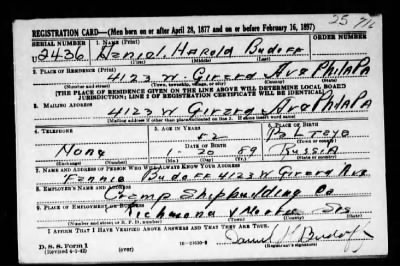 25 716
REGISTRATION CARD—(Men born on or after April 28, 1877 and on or before February 16, 1897)
SERIAL NUMBER 1. NAME (Print) ORDER NUMBER
U2436 Daniel Harold Budoff
(First) (Middle) (Last)
2. PLACE OF RESIDENCE (Print)
4123 W. Girard Ave Phila Pa
(Number and street) (Town, township, village, or city) (County) (State)
(THE PLACE OF RESIDENCE GIVEN ON THE LINE ABOVE WILL DETERMINE LOCAL BOARD
JURISDICTION; LINE 2 OF REGISTRATION CERTIFICATE WILL BE IDENTICAL)
3. MAILING ADDRESS
4123 W Girard Ave Phila Pa
(Mailing address if other than place indicated on line 2. If same insert word same)
4. TELEPHONE 5. AGE IN YEARS 6. PLACE OF BIRTH
52
DATE OF BIRTH
None 1 - 20 89 Russia
(Exchange) (Number) (Mo.) (Day) (Yr.) (State or country)
7. NAME AND ADDRESS OF PERSON WHO WILL ALWAYS KNOW YOUR ADDRESS
Fannie Budoff 4123 W Girard Ave
8. EMPLOYER'S NAME AND ADDRESS
Cramp Shipbuilding Co
9. PLACE OF EMPLOYMENT OR BUSINESS
Richmond & Norris Sts
(Number and street or R. F. D. number) (Town) (County) (State)
I AFFIRM THAT I HAVE VERIFIED ABOVE ANSWERS AND THAT THEY ARE TRUE.
D. S. S. Form 1
(Revised 4-1-42) (over) 16-21630-2 (Registrant's signature)